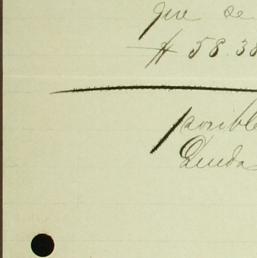 que de
# 58.38
posible
Queda